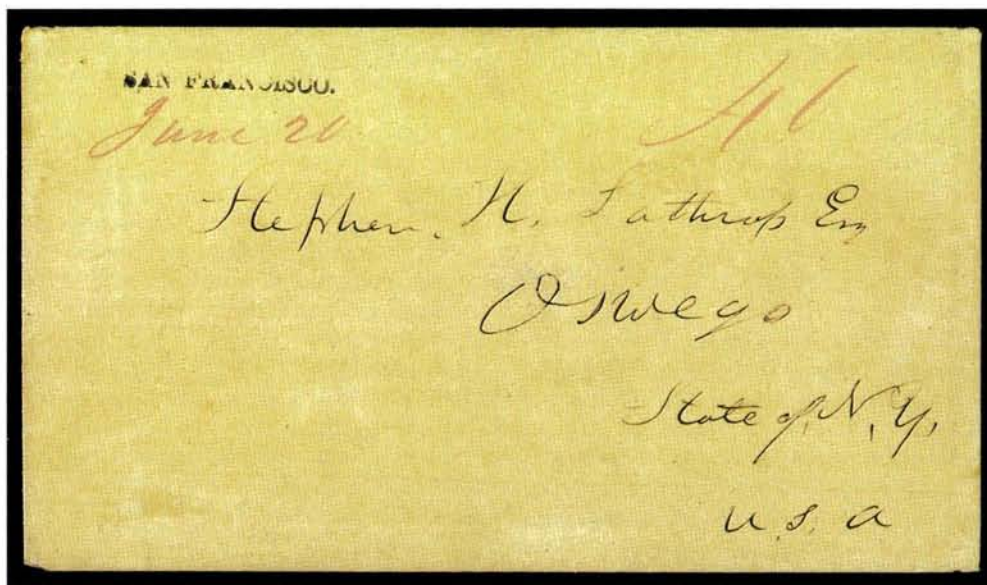 SAN FRANCISCO.
June 20 40
Stephen. H. Lathrop Esq
Oswego
State of, N, Y,
U. S. A